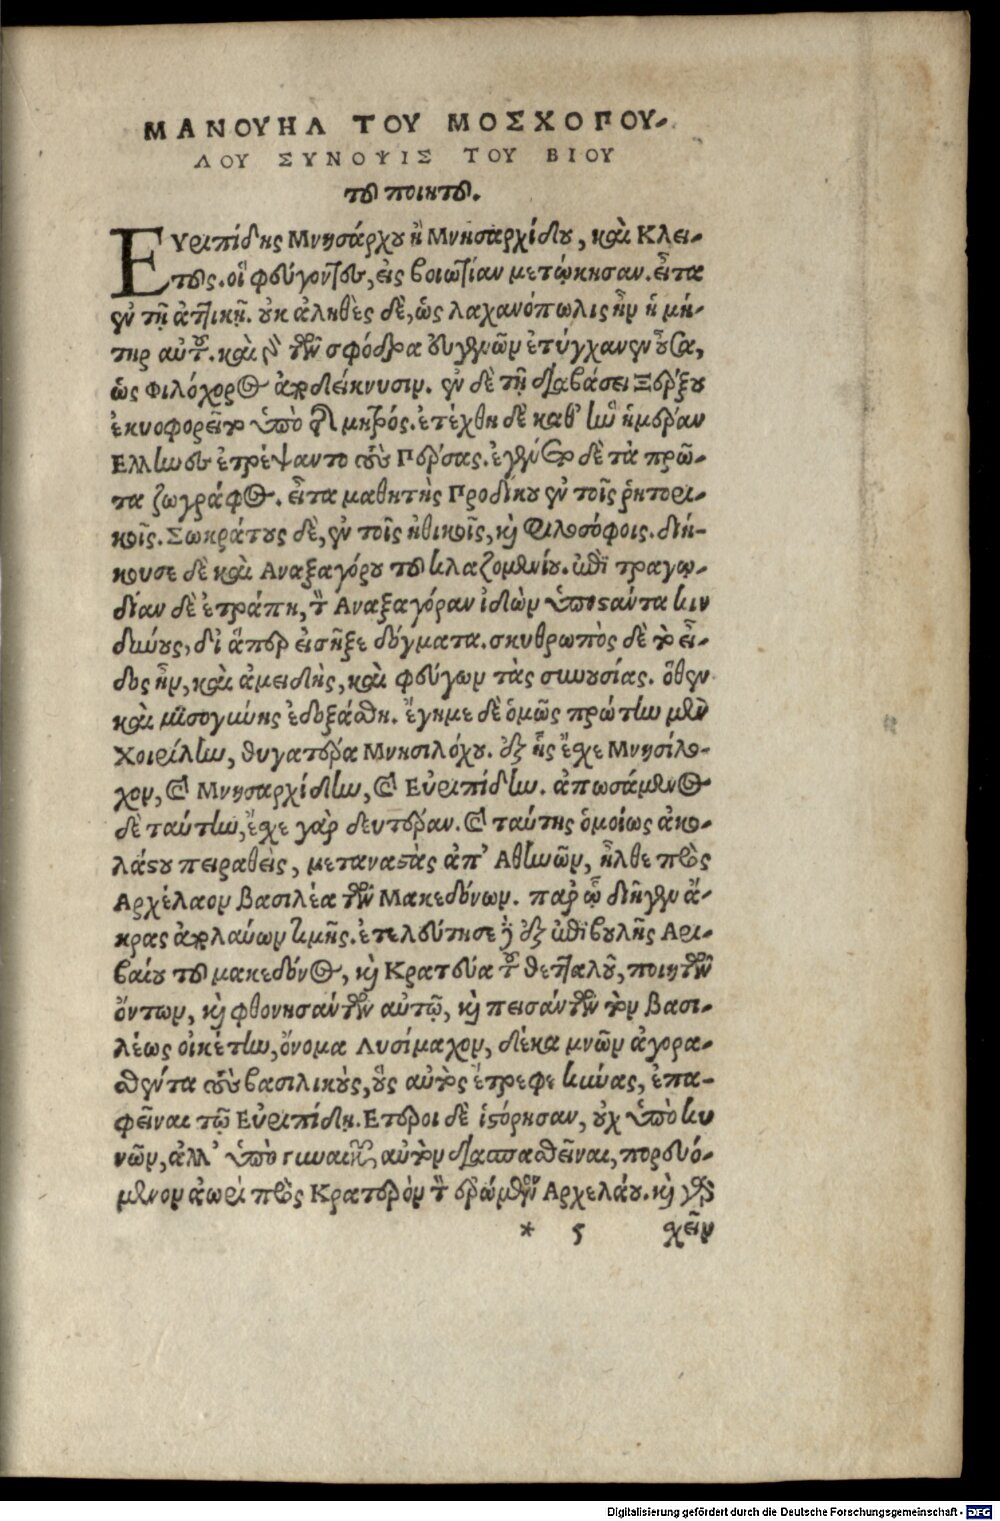 ΜΑΝΟΥΗΛ ΤΟΥ ΜΟΣΧΟΠΟΥ-
ΛΟΥ ΣΥΝΟΨΙΣ ΤΟΥ ΒΙΟΥ
τοῦ ποιητοῦ.
ΕΥριπίδης Μνησάρχου ἢ Μνησαρχίδου, καὶ Κλει-
τοῦς. οἳ φεύγοντες, εἰς βοιωτίαν μετῴκησαν. εἶτα
ἐν τῇ ἀττικῇ. οὐκ ἀληθὲς δὲ, ὡς λαχανόπωλις ἦν ἡ μή-
τηρ αὐτοῦ. καὶ γὰρ τῶν σφόδρα εὐγενῶν ἐτύγχανεν οὖσα,
ὡς Φιλόχορος ἀποδείκνυσιν. ἐν δὲ τῇ διαβάσει Ξέρξου
ἐκυοφορεῖτο ὑπὸ τῆς μητρός. ἐτέχθη δὲ καθ' ἣν ἡμέραν
Ελληνες ἐτρέψαντο τοὺς Πέρσας. ἐγένετο δὲ τὰ πρῶ-
τα ζωγράφος. εἶτα μαθητὴς Προδίκου ἐν τοῖς ῥητορι-
κοῖς. Σωκράτους δὲ, ἐν τοῖς ἠθικοῖς, καὶ φιλοσόφοις. διή-
κουσε δὲ καὶ Αναξαγόρου τοῦ κλαζομενίου. ἐπὶ τραγῳ-
δίαν δὲ ἐτράπη, τὸν Αναξαγόραν ἰδὼν ὑποστάντα κιν
δύνους, δι' ἅπερ εἰσῆξε δόγματα. σκυθρωπὸς δὲ τὸ εἶ-
δος ἦν, καὶ ἀμειδὴς, καὶ φεύγων τὰς συνουσίας. ὅθεν
καὶ μισογύνης ἐδοξάσθη. ἔγημε δὲ ὁμῶς πρώτην μὲν
Χοιρίλην, θυγατέρα Μνησιλόχου. ἐξ ἧς ἔσχε Μνησίλο-
χον, καὶ Μνησαρχίδην, καὶ Εὐριπίδην. ἀπωσάμενος
δὲ ταύτην, ἔσχε γὰρ δευτέραν. καὶ ταύτης ὁμοίως ἀκο-
λάστου πειραθεὶς, μεταναστὰς ἀπ' Αθηνῶν, ἦλθε πρὸς
Αρχέλαον βασιλέα τῶν Μακεδόνων. παρ' ᾧ διῆγεν ἄ-
κρας ἀπολαύων τιμῆς. ἐτελεύτησε δὲ ἐξ ἐπιβουλῆς Αρι-
βαίου τοῦ μακεδόνος, καὶ Κρατεύα τοῦ θετταλοῦ, ποιητῶν
ὄντων, καὶ φθονησάντων αὐτῷ, καὶ πεισάντων τὸν βασι-
λέως οἰκέτην, ὄνομα Λυσίμαχον, δέκα μνῶν ἀγορα-
σθέντα τοὺς βασιλικοὺς, οὓς αὐτὸς ἔτρεφε κύνας, ἐπα-
φεῖναι τῷ Εὐριπίδῃ. Ετεροι δὲ ἱστόρησαν, οὐχ ὑπὸ κυ
νῶν, ἀλλ' ὑπὸ γυναικῶν αὐτὸν διασπασθεῖναι, πορευό-
μενον ἀωρὶ πρὸς Κρατερὸν τὸν ἐρώμενον Αρχελάου. καὶ γὰρ
* 5 χεῖν